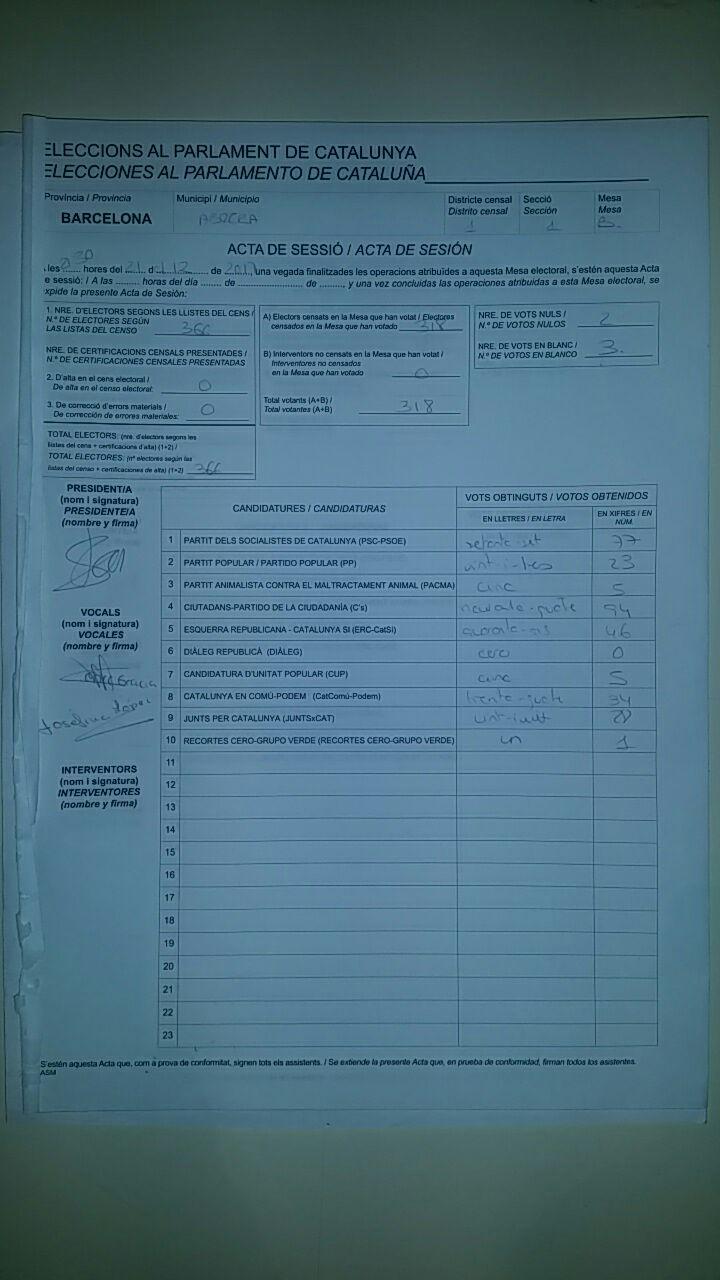 ELECCIONS AL PARLAMENT DE CATALUNYA
ELECCIONES AL PARLAMENTO DE CATALUÑA
Província / Provincia
BARCELONA
Municipi / Municipio
ABRERA
Districte censal
Distrito censal
1
Secció
Sección
1
Mesa
Mesa
B.
ACTA DE SESSIÓ / ACTA DE SESIÓN
les ...... hores del 21 d 12 de 2017, una vegada finalitzades les operacions atribuïdes a aquesta Mesa electoral, s'estén aquesta Acta
e sessió: / A las ......... horas del día ...... de ........................ de ........, y una vez concluidas las operaciones atribuidas a esta Mesa electoral, se
xpide la presente Acta de Sesión:
1. NRE. D'ELECTORS SEGONS LES LLISTES DEL CENS /
N.º DE ELECTORES SEGÚN
LAS LISTAS DEL CENSO 366
NRE. DE CERTIFICACIONS CENSALS PRESENTADES /
N.º DE CERTIFICACIONES CENSALES PRESENTADAS
2. D'alta en el cens electoral /
De alta en el censo electoral: 0
3. De correcció d'errors materials /
De corrección de errores materiales: 0
TOTAL ELECTORS: (nre. d'electors segons les
llistes del cens + certificacions d'alta) (1+2) /
TOTAL ELECTORES: (nº electores según las
listas del censo + certificaciones de alta) (1+2) 366
A) Electors censats en la Mesa que han votat / Electores
censados en la Mesa que han votado 318
B) Interventors no censats en la Mesa que han votat /
Interventores no censados
en la Mesa que han votado 0
Total votants (A+B) /
Total votantes (A+B) 318
NRE. DE VOTS NULS /
N.º DE VOTOS NULOS 2
NRE. DE VOTS EN BLANC /
N.º DE VOTOS EN BLANCO 3.
PRESIDENT/A
(nom i signatura)
PRESIDENTE/A
(nombre y firma)
VOCALS
(nom i signatura)
VOCALES
(nombre y firma)
Garcia
Joselina Lopez
INTERVENTORS
(nom i signatura)
INTERVENTORES
(nombre y firma)
CANDIDATURES / CANDIDATURAS
VOTS OBTINGUTS / VOTOS OBTENIDOS
EN LLETRES / EN LETRA
EN XIFRES / EN NÚM.
1 PARTIT DELS SOCIALISTES DE CATALUNYA (PSC-PSOE) setanta-set 77
2 PARTIT POPULAR / PARTIDO POPULAR (PP) vint-i-tres 23
3 PARTIT ANIMALISTA CONTRA EL MALTRACTAMENT ANIMAL (PACMA) cinc 5
4 CIUTADANS-PARTIDO DE LA CIUDADANÍA (C's) 94
5 ESQUERRA REPUBLICANA - CATALUNYA SI (ERC-CatSí) 46
6 DIÀLEG REPUBLICÀ (DIÀLEG) cero 0
7 CANDIDATURA D'UNITAT POPULAR (CUP) cinc 5
8 CATALUNYA EN COMÚ-PODEM (CatComú-Podem) 34
9 JUNTS PER CATALUNYA (JUNTSxCAT) 28
10 RECORTES CERO-GRUPO VERDE (RECORTES CERO-GRUPO VERDE) un 1
11
12
13
14
15
16
17
18
19
20
21
22
23
S'estén aquesta Acta que, com a prova de conformitat, signen tots els assistents. / Se extiende la presente Acta que, en prueba de conformidad, firman todos los asistentes.
ASM